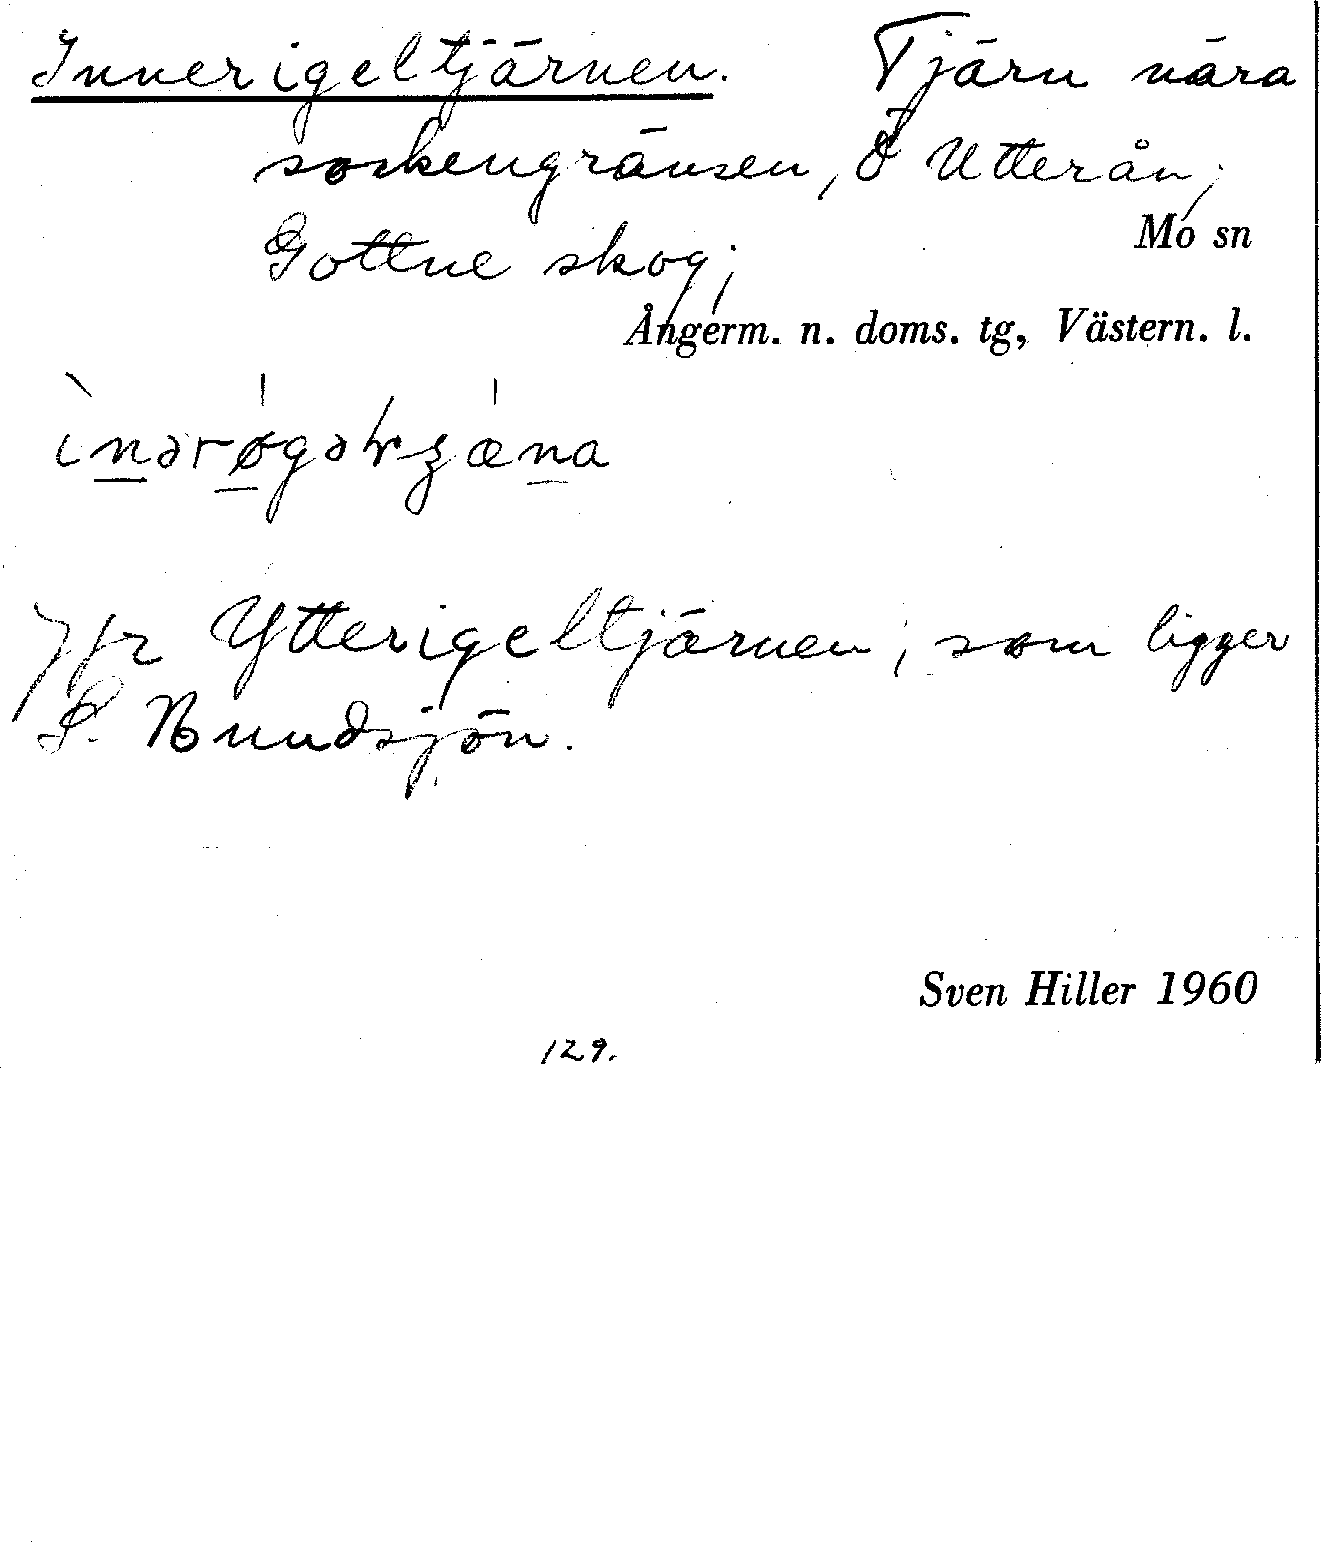 Innerigeltjärnen. Tjärn nära
sockengränsen, Ö Utterån,
Gottne skog;
Mo sn
Ångerm. n. doms. tg, Västern. l.
Jfr Ytterigeltjärnen, som ligger
S. Bundsjön.
Sven Hiller 1960
129.